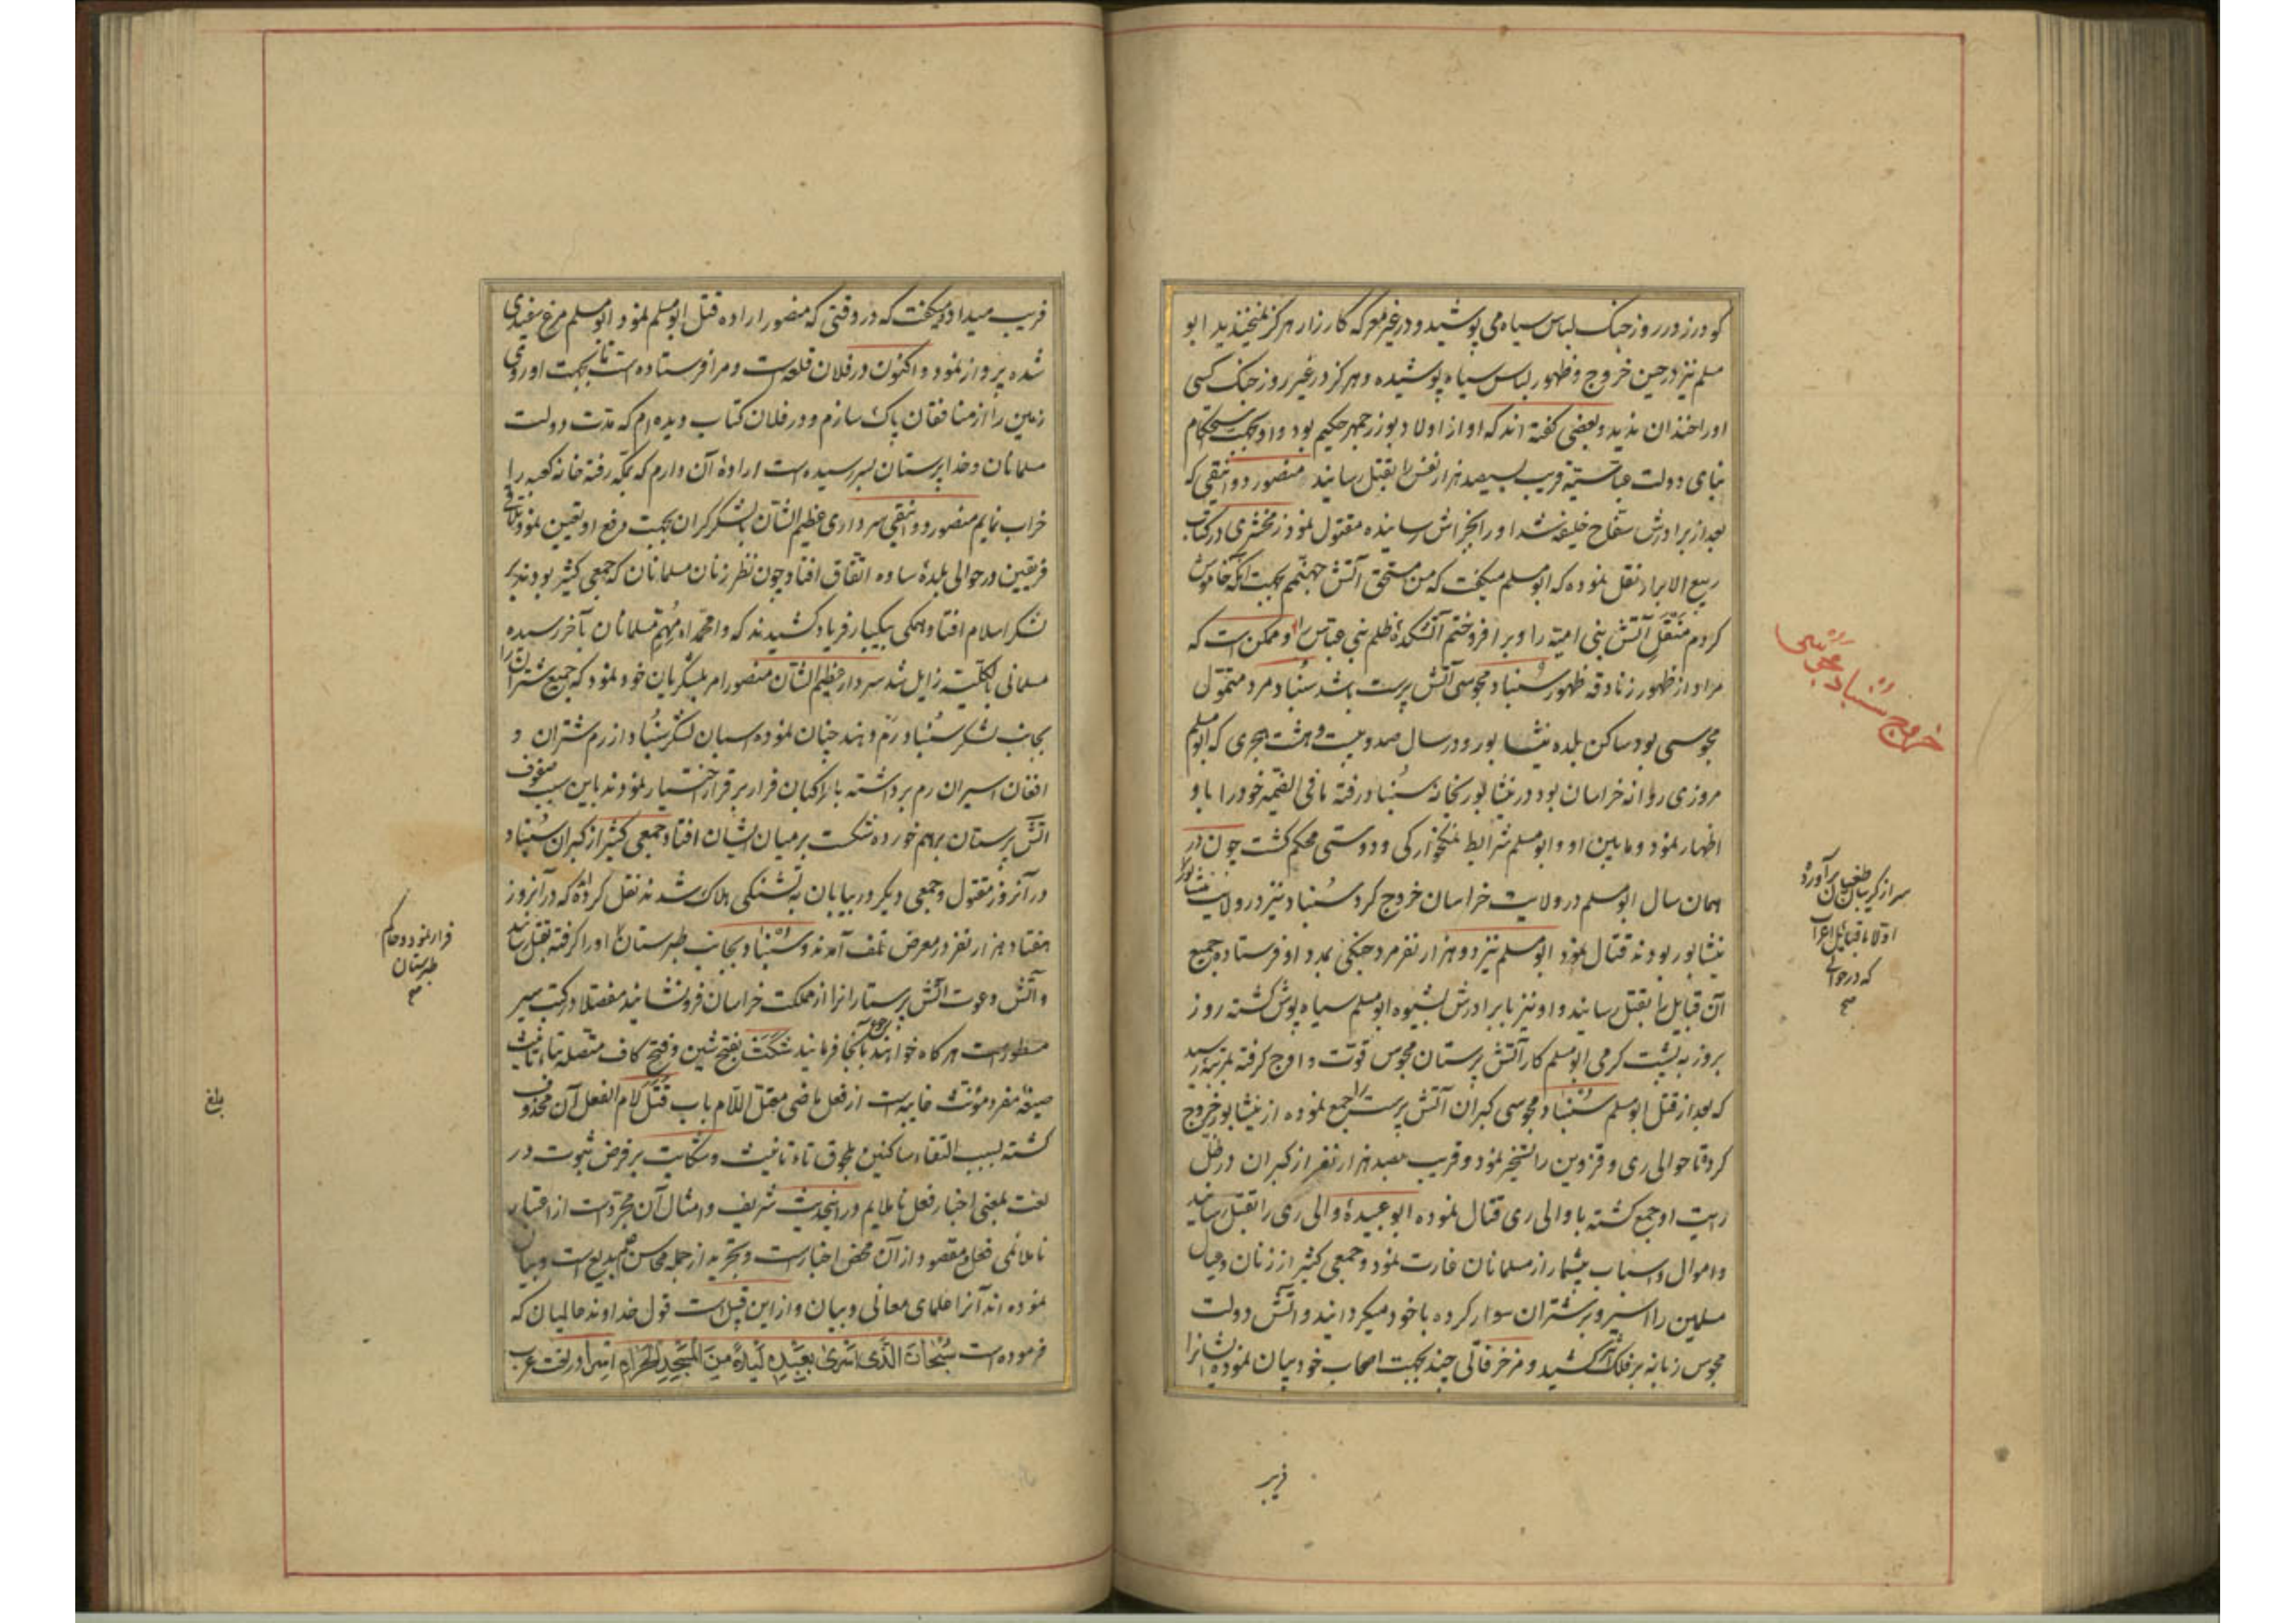 کودرز در روز جنگ لباس سیاه می پوشید و در غیر معرکه کارزار هرکز نمیخندید ابو
مسلم نیز در حین خروج و ظهور لباس سیاه پوشیده و هرکز در غیر روز جنگ کسی
او را خندان ندید و بعضی کفته اند که او از اولاد بوزرجمهر حکیم بود و او بجهت استحکام
بنای دولت عباسیّه قریب بسیصد هزار نفس را بقتل رسانید منصور دوانیقی که
بعد از برادرش سفّاح خلیفه شد او را بجزاش رسانیده مقتول نمود زمخشری در کتاب
ربیع الابرار نقل نموده که ابومسلم میکفت که من مستحق آتش جهنّمم بجهت آنکه خاموش
کردم منقل آتش بنی امیّه را و بر افروختم آتشکدهٔ ظلم بنی عباس را و ممکن است که
مراد از ظهور زنادقه ظهور سُنباد مجوسی آتش پرست باشد سُنباد مرد متموّل
مجوسی بود ساکن بلده نیشابور و در سال صد و بیست و هشت هجری که ابومسلم
مروزی روانه خراسان بود در نیشابور بخانهٔ سُنباد رفته مافی الضمیر خود را باو
اظهار نمود و مابین او و ابومسلم شرایط نمکخوارکی و دوستی محکم کشت چون در
همان سال ابومسلم در ولایت خراسان خروج کرد سُنباد نیز در ولایت نیشابور
نیشابور بودند قتال نمود ابومسلم نیز دو هزار نفر مرد جنکی بمدد او فرستاده جمیع
آن قبایل را بقتل رسانید و او نیز با برادرش بشیوه ابومسلم سیاه پوش کشته روز
بروز به پشت کرمی ابومسلم کار آتش پرستان مجوس قوّت و اوج کرفته بمرتبهٔ رسید
که بعد از قتل ابومسلم سُنباد مجوسی کبران آتش پرست را جمع نموده از نیشابور خروج
کرد تا حوالی ری و قزوین را تسخیر نمود و قریب بصد هزار نفر از کبران در ظلّ
رایت او جمع کشته با والی ری قتال نموده ابو عبیدهٔ والی ری را بقتل رسانید
و اموال و اسباب بیشمار از مسلمانان غارت نمود و جمعی کثیر از زنان و عیال
مسلمین را اسیر و بر شتران سوار کرده با خود میکردانید و آتش دولت
مجوس زبانه بر فلک اثیر کشید و مزخرفاتی چند بجهت اصحاب خود بیان نموده ایشانرا
خروج سُنباد مجوسی
سر از کریبان طغیان برآورده
اوّلا با قبایل اعراب
که در حوالی
صح
فریب
فریب میداد و میکفت که در وقتی که منصور اراده قتل ابومسلم نمود ابومسلم مرغ سفیدی
شده پرواز نمود و اکنون در فلان قلعه است و مرا فرستاده است تا بجهت او روی
زمین را از منافقان پاک سازم و در فلان کتاب دیده ام که مدّت دولت
مسلمانان و خدا پرستان بسر رسیده است اراده آن دارم که بمکّه رفته خانه کعبه را
خراب نمایم منصور دوانیقی سرداری عظیم الشأن با لشکر کران بجهت دفع او تعیین نمود و تلاقی
فریقین در حوالی بلدهٔ ساوه اتفاق افتاد چون نظر زنان مسلمانان که جمعی کثیر بودند بر
لشکر اسلام افتاد همکی بیکبار فریاد کشیدند که وامحمّداه مُهمّ مسلمانان بآخر رسیده
مسلمانی بالکلیّه زایل شد سردار عظیم الشأن منصور امر بلشکریان خود نمود که جمیع شتران را
بجانب لشکر سُنباد رَم دهند چنان نموده اسبان لشکر سُنباد از رم شتران و
افغان اسیران رم برداشته با راکبان فرار بر قرار اختیار نمودند باین سبب صفوف
آتش پرستان برهم خورده شکست بر میان ایشان افتاد جمعی کثیر از کبران سُنباد
در آنروز مقتول و جمعی دیکر در بیابان به تشنکی هلاک شدند نقل کرده اند که در آنروز
هفتاد هزار نفر در معرض تلف آمدند و سُنباد بجانب طبرستان او را کرفته بقتل رسانید
و آتش دعوت آتش پرستانرا از مملکت خراسان فرونشانید مفصّلا در کتب سیر
مسطور است هر کاه خواهند بآنجا رجوع فرمایند شَکَت بفتح شین و فتح کاف متّصله بتاء تأنیث
صیغهٔ مفرد مؤنّث غایبه است از فعل ماضی معتلّ اللّام باب قتل لام الفعل آن محذوف
کشته بسبب التقاء ساکنین بلحوق تاء تأنیث و شکایت بر فرض ثبوت در
لغت بمعنی اخبار فعل ناملایم در اینحدیث شریف و امثال آن مجرّد است از اعتبار
ناملائمی فعل و مقصود از آن محض اخبار است و تجرید از جمله محاسن بدیع است و بیان
نموده اند آنرا علمای معانی و بیان و از این قبیل است قول خداوند عالمیان که
فرموده است سُبْحانَ الَّذی اَسْریٰ بِعَبْدِهِ لَیْلاً مِنَ الْمَسْجِدِ الْحَرامِ اسراء در لغت عرب
فرار نمود و حاکم
طبرستان
صح
بلغ